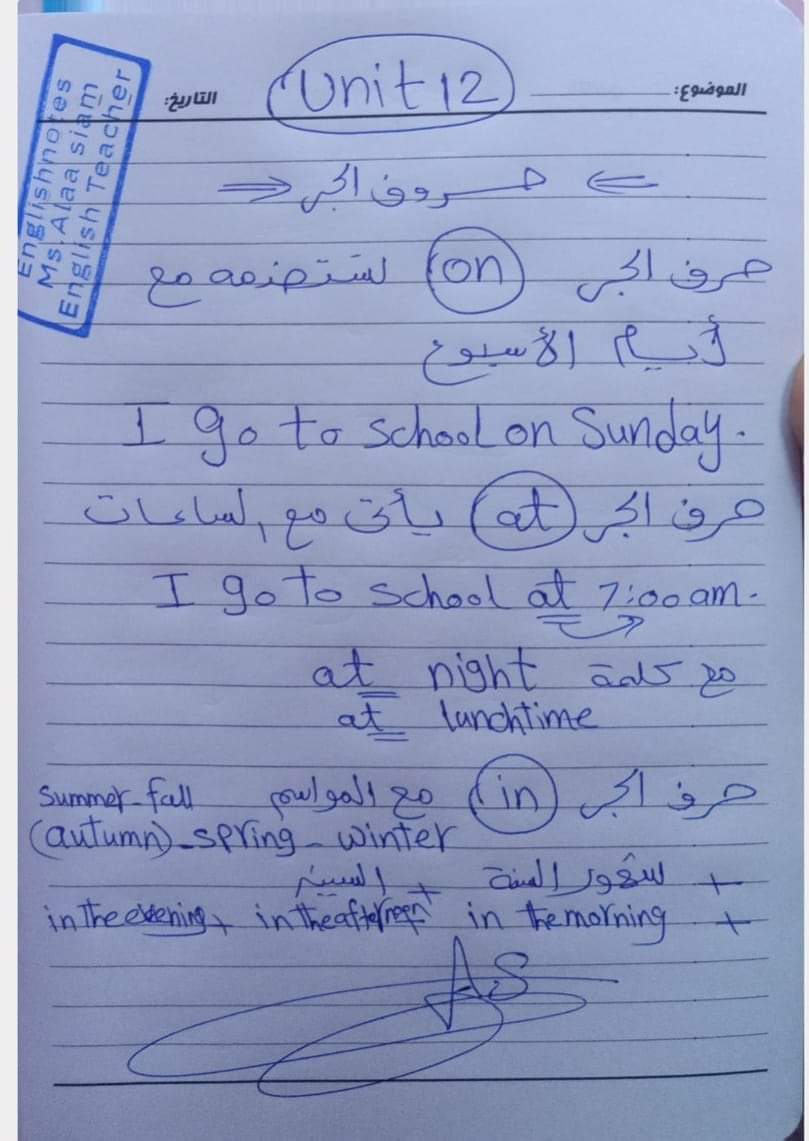 Englishnotes
Ms.Alaa siam
English Teacher
الموضوع: Unit 12 التاريخ:
حروف الجر
حرف الجر on نستخدمه مع
أيام الأسبوع
I go to school on Sunday.
حرف الجر at يأتي مع الساعات
I go to school at 7:00am.
مع كلمة at night
at lunchtime
حرف الجر in مع المواسم summer-fall
(autumn)-spring-winter
+ شهور السنة + السنين
+ in the morning + in the afternoon + in the evening
AS